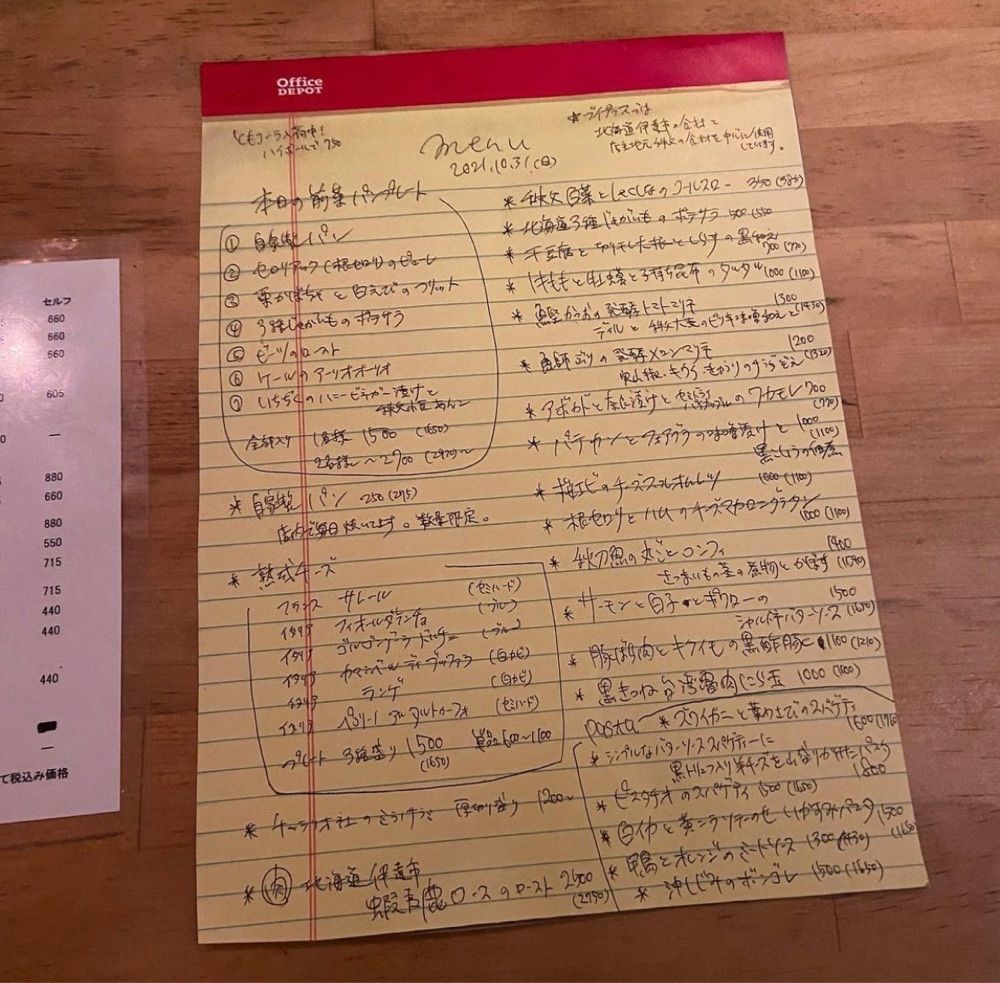 Office
DEPOT
ハイボールで750
menu
2021.10.31(日)
北海道伊達市の食材と
店主地元秩父の食材を中心に使用
しています。
本日の前菜パンプレート
① 自家製パン
② セロリアック(根セロリ)のピューレ
③ 栗かぼちゃと白えびのフリット
④ 3種じゃがいものポテサラ
⑤ ビーツのロースト
⑥ ケールのアーリオオーリオ
⑦ いちぢくのハニービネガー漬けと
秩父小豆あんこ
全部入り 1名様 1500 (1650)
2名様〜2700 (2970)〜
* 自家製パン 250 (275)
店内で毎日焼いてます。数量限定。
* 熟成チーズ
フランス サレール (セミハード)
イタリア (ブルー)
イタリア ゴルゴンゾーラドルチェ (ブルー)
イタリア (白カビ)
イタリア ランゲ (白カビ)
イタリア ペコリーノ アルタルトゥーフォ (セミハード)
プレート 3種盛り 1500 単品600〜1100
(1650)
厚切り 1200〜
* 北海道伊達市
蝦夷鹿ロースのロースト 2500
(2750)
* 秩父白菜としゃくしなのコールスロー 350 (385)
* 北海道3種じゃがいものポテサラ 500 (550
* 干豆腐と切り干し大根としらすの黒和え
700 (770)
牡蠣と子持ち昆布のタルタル 1000 (1100)
* 鰹かつおの発酵トマトマリネ 1300
(1430)
* 魚師ぶりの発酵メロンマリネ 1200
実山椒・キウイ・きゅうりの (1320)
* アボカドと奈良漬けとセミドライパイナップルのワカモレ 700
(770)
* パテカンとフォアグラの味噌漬けと 1000
(1100)
* 桜エビのチーズスフレオムレツ
1000 (1100)
* 根セロリとハムのチーズマカロニグラタン
1000 (1100)
* 秋刀魚の丸ごとコンフィ 1400
さつまいも茎の煮物とかぼす (1540)
* サーモンと白子とギワローの 1500
バターソース (1650)
* 豚ばら肉とキクイモの黒酢酢豚 1100 (1210)
* 黒きつね台湾魯肉にら玉 1000 (1100)
pasta
* ズワイガニと葉のスパゲティ
1600 (1760)
* シンプルなバターソーススパゲティーに
黒トリュフ入り羊チーズを山盛りかけたパスタ
1800
* ピスタチオのスパゲティ 1500 (1650)
* 白イカと黄ニラ いかすみパスタ 1500
(1650)
* 鴨とオレンジのミートソース 1300 (1430)
* 沖しじみのボンゴレ 1500 (1650)
セルフ
660
660
660
605
—
880
660
880
550
715
715
440
440
440
—
て税込み価格